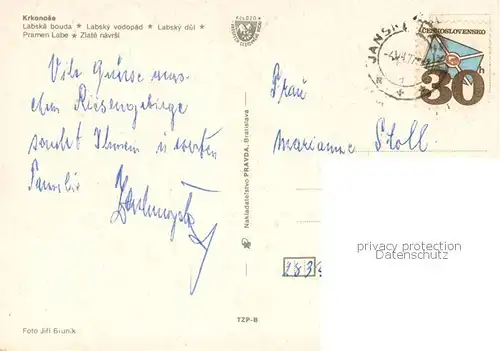 Krkonoše
Labská bouda ★ Labský vodopád ★ Labský důl ★
Pramen Labe ★ Zlaté návrší
Viele Grüsse aus
dem Riesengebirge
sendet Ihnen u werten
Familie
Foto Jiří Bruník
TZP-B
Nakladatelstvo PRAVDA, Bratislava
JANSKÉ
ČESKOSLOVENSKO
30h
Frau
Marianne Stoll
privacy protection
Ansichtskarten-Center.de